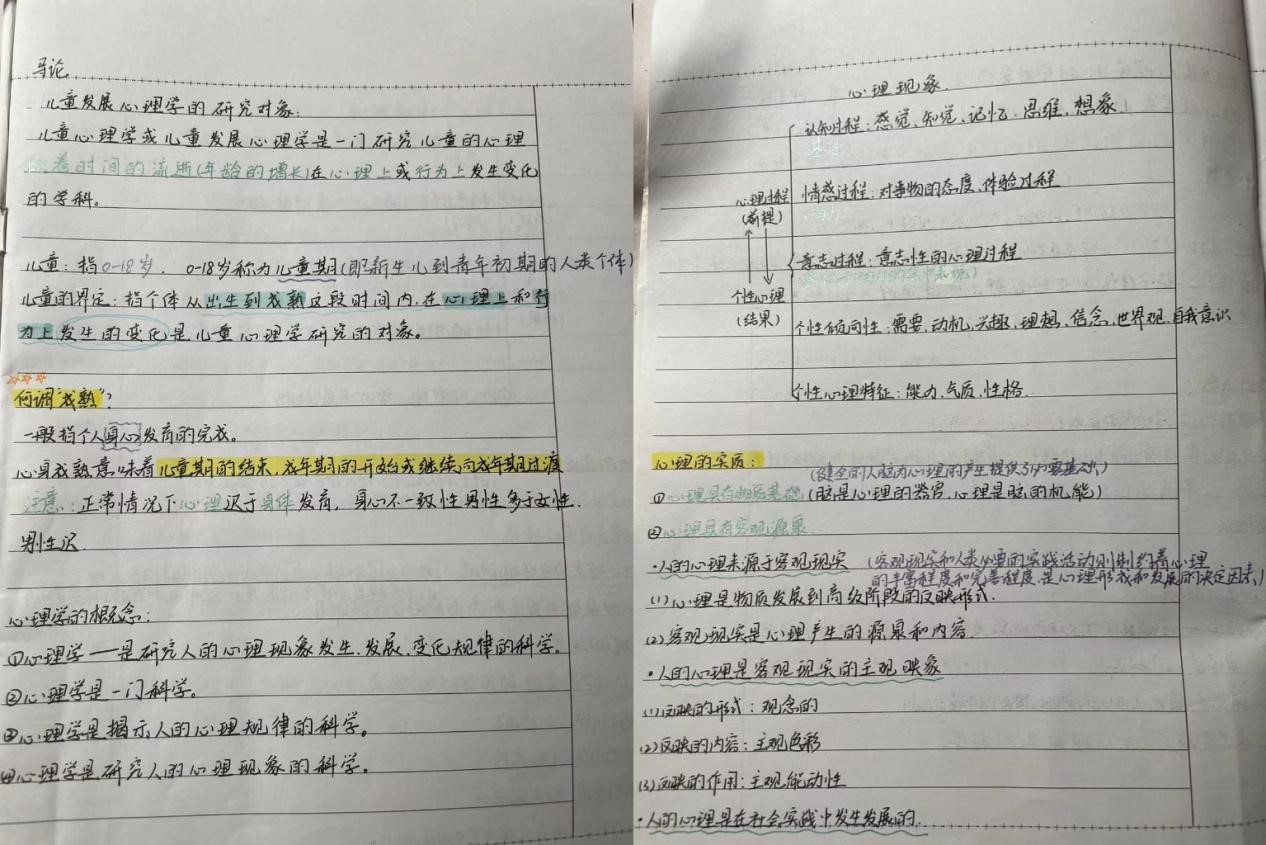 导论
儿童发展心理学的研究对象:
儿童心理学或儿童发展心理学是一门研究儿童的心理
随着时间的流逝(年龄的增长)在心理上或行为上发生变化
的学科。
儿童:指0-18岁. 0-18岁称为儿童期(即新生儿到青年初期的人类个体)
儿童的界定:指个体从出生到成熟这段时间内,在心理上和行
为上发生的变化是儿童心理学研究的对象。
何谓"成熟"?
一般指个人身心发育的完成。
心身成熟意味着儿童期的结束,成年期的开始或继续向成年期过渡
注意:正常情况下心理迟于身体发育,身心不一致性男性多于女性.
男性迟
心理学的概念:
①心理学——是研究人的心理现象发生、发展、变化规律的科学。
②心理学是一门科学。
③心理学是揭示人的心理规律的科学。
④心理学是研究人的心理现象的科学。
心理现象.
认知过程:感觉、知觉、记忆、思维、想象.
情感过程:对事物的态度、体验过程
心理过程
(前提)
意志过程:意志性的心理过程
个性心理
(结果)
个性倾向性:需要、动机、兴趣、理想、信念、世界观、自我意识
个性心理特征:能力、气质、性格.
心理的实质:
(健全的人脑为心理的产生提供了必要基础)
①心理具有物质基础(脑是心理的器官,心理是脑的机能)
②心理具有客观源泉
·人的心理来源于客观现实 (客观现实和人类必要的实践活动则制约着心理
的丰富程度和完善程度,是心理形成和发展的决定因素)
(1)心理是物质发展到高级阶段的反映形式.
(2)客观现实是心理产生的源泉和内容.
·人的心理是客观现实的主观映象
(1)反映的形式:观念的
(2)反映的内容:主观色彩
(3)反映的作用:主观能动性
·人的心理是在社会实践中发生发展的.